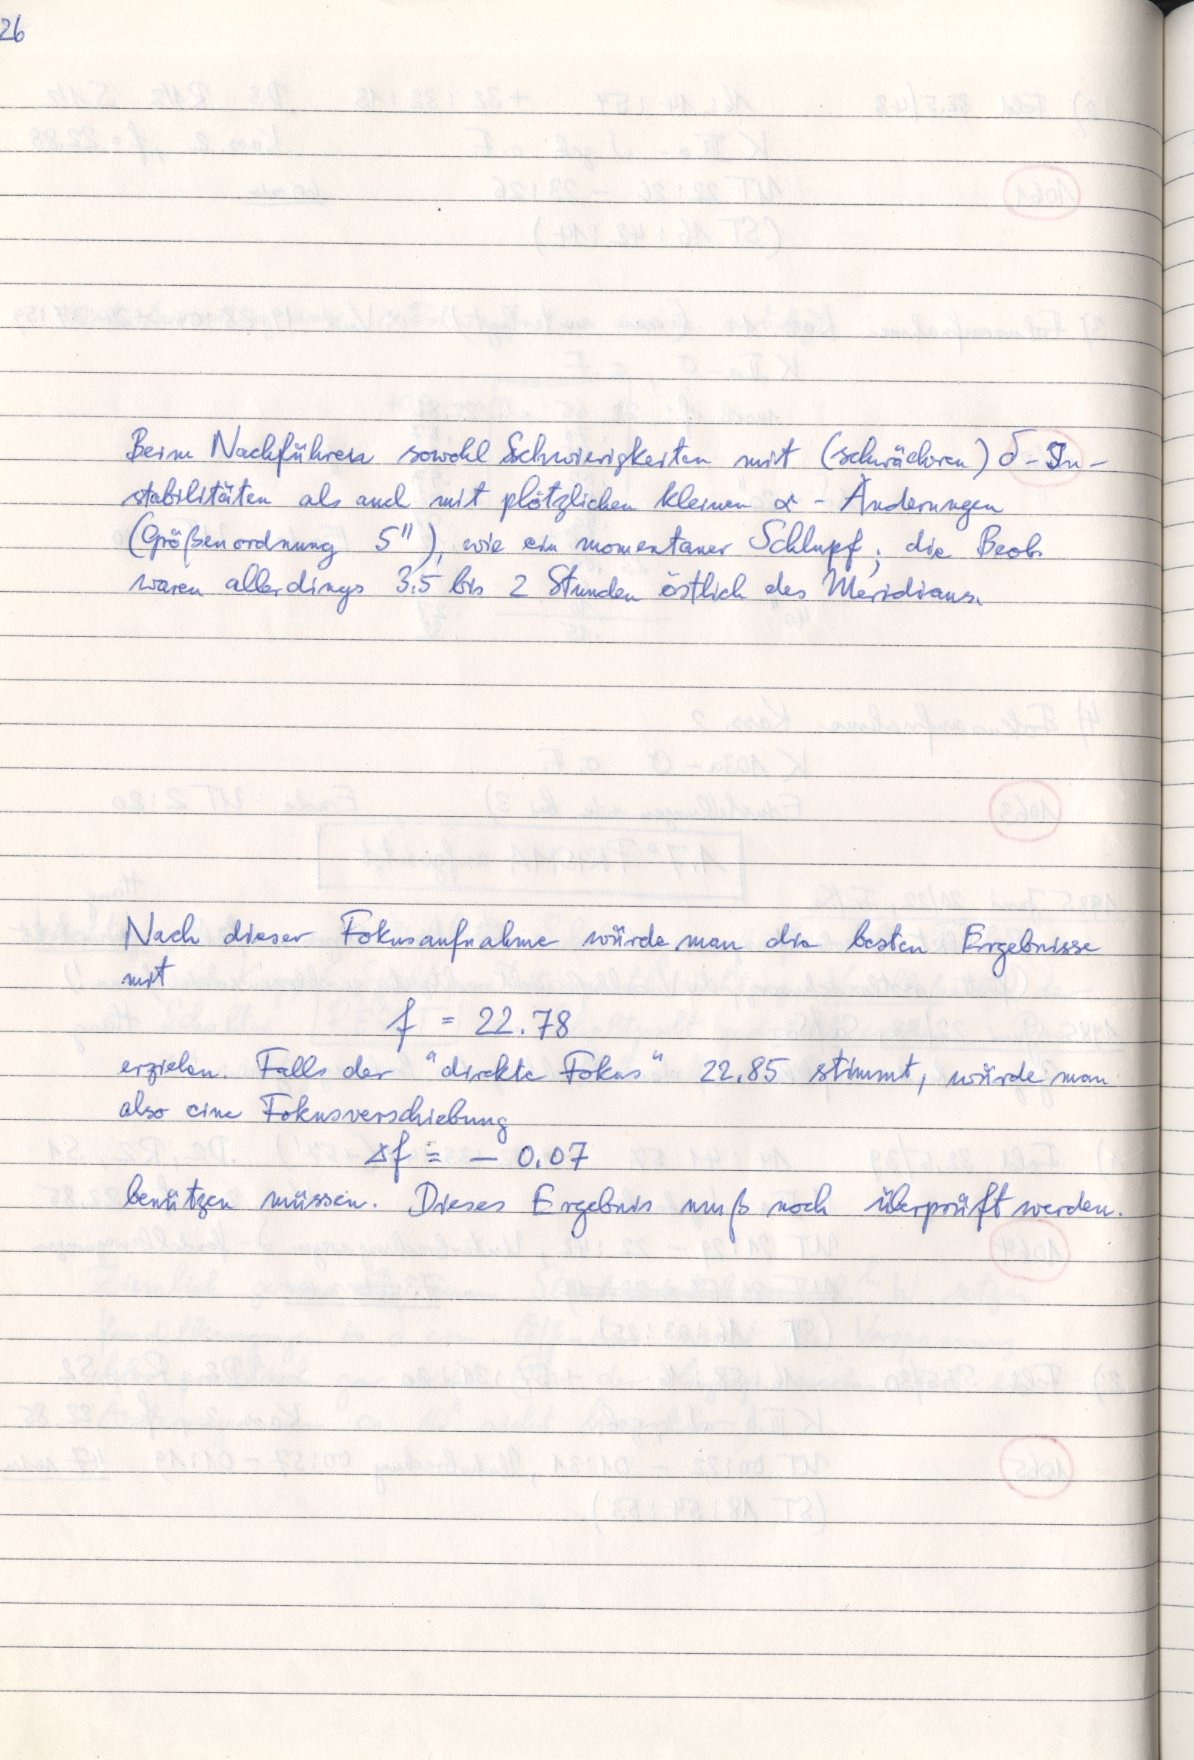 26
Beim Nachführen sowohl Schwierigkeiten mit (schwächeren) δ-In-
stabilitäten als auch mit plötzlichen kleinen α-Änderungen
(Größenordnung 5"), wie ein momentaner Schlupf; die Beob.
waren allerdings 3.5 bis 2 Stunden östlich des Meridians.
Nach dieser Fokusaufnahme würde man die besten Ergebnisse
mit
f = 22.78
erzielen. Falls der "direkte Fokus" 22.85 stimmt, würde man
also eine Fokusverschiebung
Δf = - 0.07
benützen müssen. Dieses Ergebnis muß noch überprüft werden.